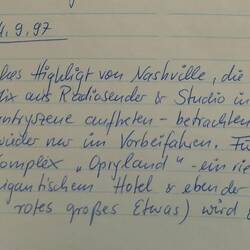 4.9.97
kes Highligt von Nashville, die
dix aus Radiosender & Studio in
untryszene auftreten - betrachten
wieder nur im Vorbeifahren. Fü
Complex „Opryland" - ein rie
igantischem Hotel & eben der
rotes großes Etwas) wird